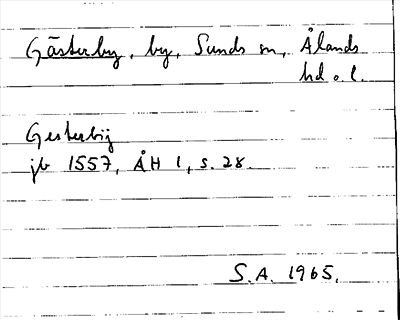 Gästerby, by, Sunds sn, Ålands
hd o. l.
Gesterbij
jb 1557, ÅH 1, s. 28.
S.A. 1965.